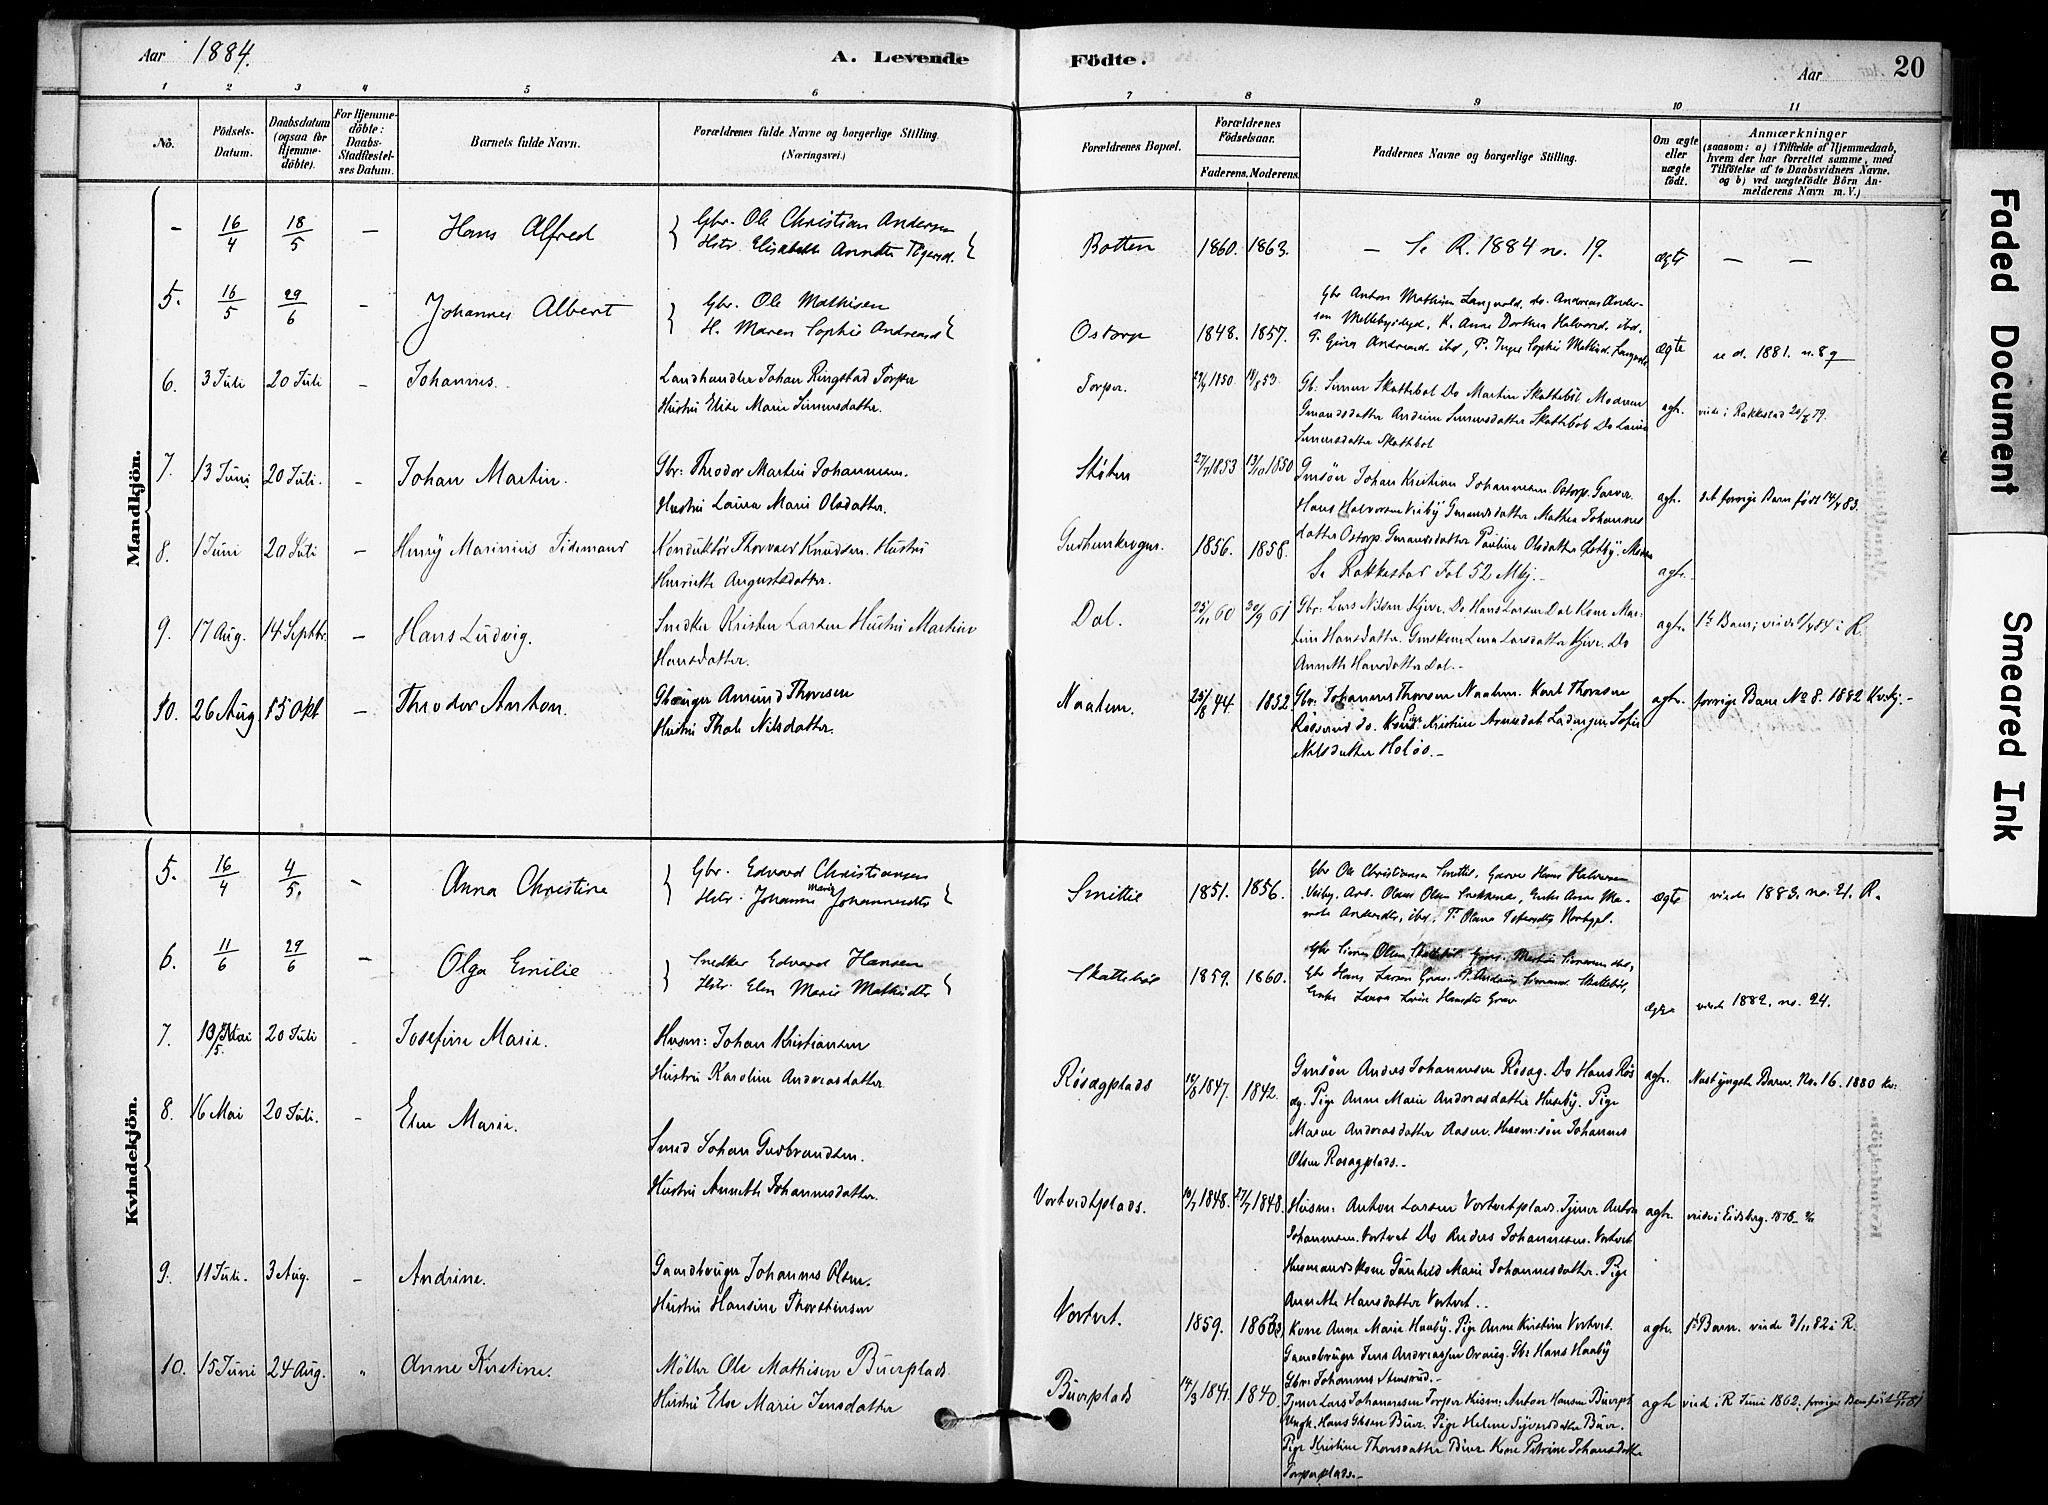 Aar 1884.
A. Levende
Födte.
Aar
20
1 2 3 4 5 6 7 8 9 10 11
No.
Födsels-
Datum.
Daabsdatum
(ogsaa for
Hjemme-
döbte).
For Hjemme-
döbte:
Daabs-
Stadfæstel-
ses Datum.
Barnets fulde Navn.
Forældrenes fulde Navne og borgerlige Stilling
(Næringsvei.)
Forældrenes Bopæl.
Forældrenes
Födselsaar.
Faderens. Moderens.
Faddernes Navne og borgerlige Stilling.
Om ægte
eller
uægte
födt.
Anmærkninger
(saasom: a) i Tilfælde af Hjemmedaab,
hvem der har forrettet samme, med
Tilföielse af to Daabsvidners Navne.
og b) ved uægtefödte Börn An-
melderens Navn m. V.)
Mandkjön.
- 16/4 18/5 - Hans Alfred
Gbr. Ole Christian Andersen
Hstr. Elisabeth Annette
Botten 1860. 1863. - Se R. 1884 no. 19. ægte - -
5. 16/5 29/6 - Johannes Albert
Gbr. Ole Mathisen
H. Maren Sophie Andreasd.
Ostorp 1848. 1857.
Gbr Anton Mathisen Langvold, do. Andreas Ander-
sen Mellebydygd, K. Anne Dorthea Halvorsd. ibd.
Andreasd. ibd, P. Inge Sophie Mathisd.
ægte se d. 1881. n. 89
6. 3 Juli 20 Juli - Johannes.
Landhandler Johan Ringstad Torper
Hustru Elise Marie Simensdatter.
Torper. 1850. 53
Gb: Simen Skattebøl Do Martin Skattebøl
Gmandsdatter Andrine Simensdatter Skattebøl Do Laura
Simensdatter Skattebøl
ægte. viede i Rakkestad 79.
7. 13 Juni 20 Juli. - Johan Martin.
Gbr: Theodor Martin Johannesen.
Hustru Laura Marie Olsdatter.
27/7 1853 13/10 1850
Gmsøn Johan Kristian Johannesen Ostorp. Garver
Hans Halvorsen Viby Gmandsdatter Mathea Johannes
datter Ostorp. Gmandsdatter Pauline Olsdatter
ægte. det forrige Barn født 83.
8. 1 Juni 20 Juli - Henry Marinius Tidemand
Konduktör Thorvald Knudsen. Hustru
Henriette Augustsdatter.
1856. 1858.
Se Rakkestad Fol 52 Mkj. -
ægte.
9. 17 Aug. 14 Septbr. - Hans Ludvig.
Snedker Kristen Larsen Hustru Martine
Hansdatter.
Dal. 25/11 60 30/9 61
Gbr: Lars Nilsen Kjær. Do Hans Larsen Dal Kone Mar-
tin Hansdatter. Lina Larsdatter Kjær. Do
Annette Hansdatter Dal. -
ægte. 1ste Barn; viede 84 i R.
10. 26 Aug 15 Okt - Theodor Anton.
Gbruger Amund Thoresen
Hustru Thale Nilsdatter.
Naalem. 25/8 44. 1852
Gbr: Johannes Thoresen Naalem. Karl Thoresen
do. Kristine Sofie
Nilsdatter Holøs. -
ægte. forrige Barn No 8. 1882 Kvkj. -
Kvindekjön.
5. 16/4 4/5. - Anna Christine
Gbr. Edvard Christiansen
Hstr. Johanne Marie Johannesdtr
Smittie 1851. 1856.
Gbr Ole Christiansen Smittie. Garver Hans Halvorsen
Viby. Arb. Olaus Olsen Enke Anne Ma-
rie Andersdtr, ibd.
ægte viede 1883. no. 21. R.
6. 11/6 29/6 - Olga Emilie
Snedker Edvard Hansen
Hstr. Elen Marie Mathisdtr
Skattebøl 1859. 1860.
Gbr Simen Olsen Skattebøl
Gbr Hans Larsen Grav. Skattebøl,
Enke Hansdtr Grav
ægte viede 1882. no. 24.
7. 10 Mai 20 Juli - Josefine Marie.
Husm: Johan Kristiansen
Hustru Karoline Andreasdatter.
Røsægplads 1847. 1842.
Gmsön Anders Johannesen Rösæg. Do Hans Rös
æg. Pige Anne Marie Andreasdatter Huseby. Pige
Maren Andreasdatter Aasen. Husm: søn Johannes
Olsen Rosægplads. -
ægte. Næst yngste Barn. No. 16. 1880
8. 16 Mai 20 Juli. - Elen Marie.
Smed Johan Gudbrandsen.
Hustru Annette Johannesdatter.
Vortvedtplads. 1848. 27/7 1848.
Husm: Anton Larsen Vortvetplads. Tjener Anton
Johannesen. Vortvet Do Anders Johannesen. Vortvet
Husmandskone Gunhild Marie Johannesdatter. Pige
Annette Hansdatter Vortvet..
ægte. viede i Eidsberg. 1878
9. 11 Juli. 3 Aug. - Andrine.
Gaardbruger Johannes Olsen.
Hustru Hansine Thorstensen
Vortvet. 1859. 1863
Kone Anne Marie Haaby. Pige Anne Kristine Vortvet.
Gaardbruger Jens Andreassen Gbr Hans Haaby
Gbr: Johannes
ægte. 1st Barn. viede 3/11 82 i R.
10. 15 Juni 24 Aug. " Anne Kirstine.
Möller Ole Mathisen Buerplads.
Hustru Else Marie Jensdatter
Buerplads 14/3 1841. 1840.
Tjener Lars Johannesen Torper Husm: Anton Hansen Buerpl.
Ungk. Hans Buer. Pige Helene Syversdatter Buer.
Pige Kristine Thorvsdatter Buer Kone Petrine Johansdatter
Torperplads. -
ægte viede i R Juni 1862. forrige Barn født
Faded Document
Smeared Ink